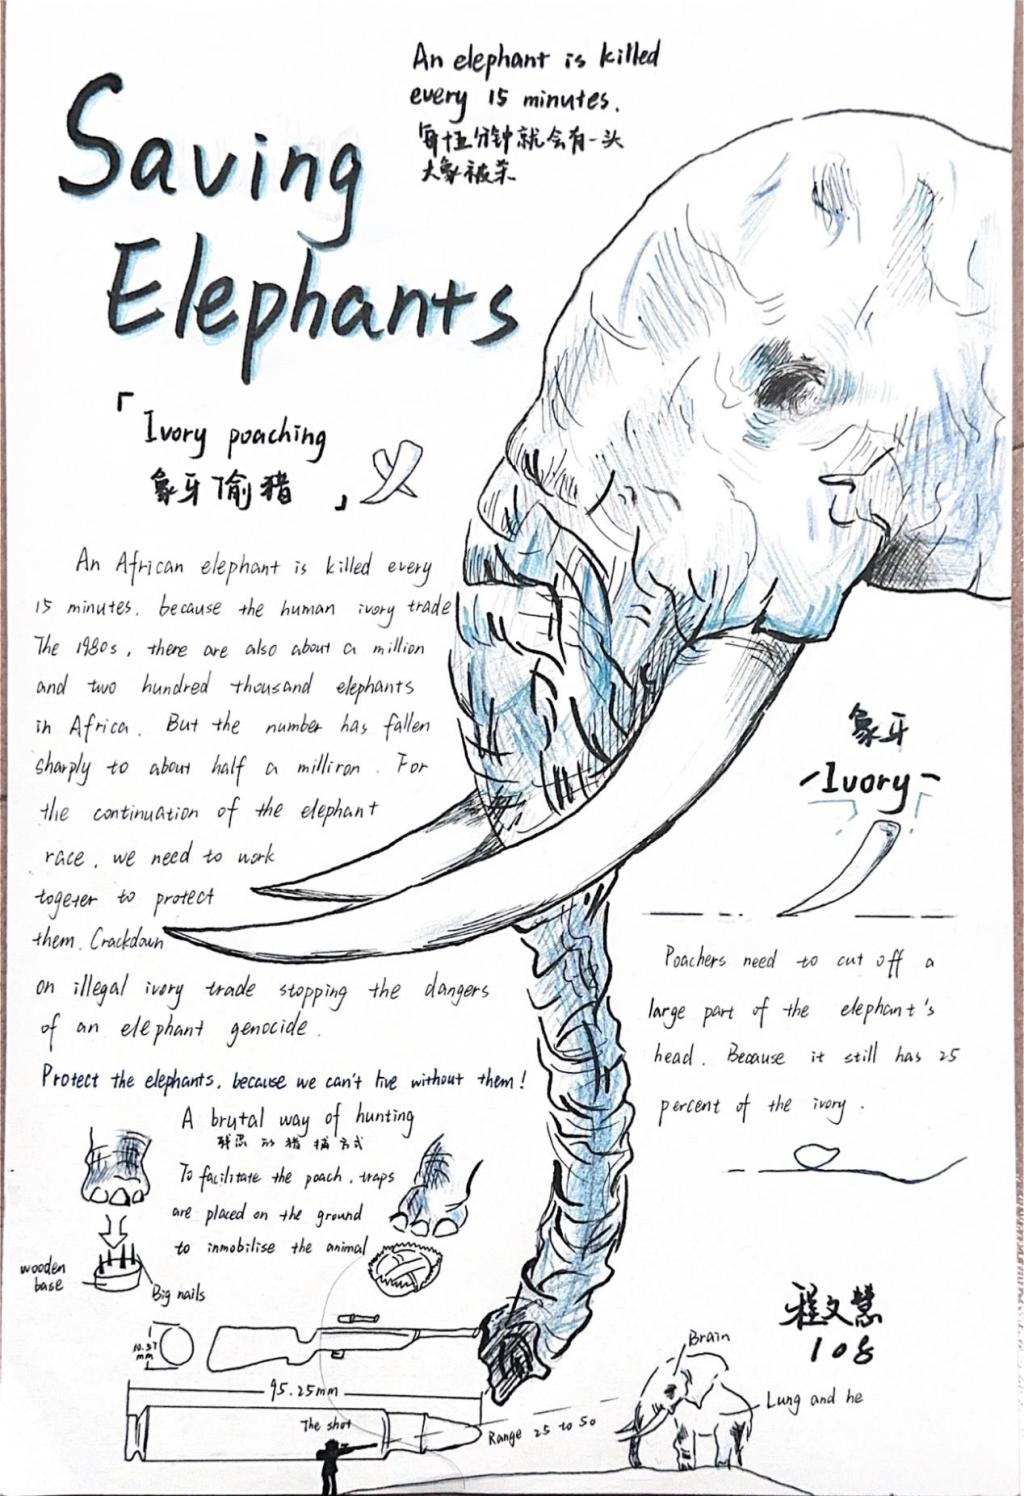 An elephant is killed
every 15 minutes.
每十五分钟就会有一头
大象被杀
Saving
Elephants
「Ivory poaching
象牙偷猎」
An African elephant is killed every
15 minutes. because the human ivory trade
The 1980s, there are also about a million
and two hundred thousand elephants
in Africa. But the number has fallen
sharply to about half a milliron. For
the continuation of the elephant
race, we need to work
togeter to protect
them. Crackdown
on illegal ivory trade stopping the dangers
of an elephant genocide.
Protect the elephants, because we can't live without them!
象牙
-Ivory-
Poachers need to cut off a
large part of the elephant's
head. Because it still has 25
percent of the ivory.
A brutal way of hunting
残忍的猎捕方式
To facilitate the poach, traps
are placed on the ground
to inmobilise the animal
wooden
base
Big nails
mm
95.25mm
The shot
Range 25 to 50
Brain
Lung and he
程文慧
108